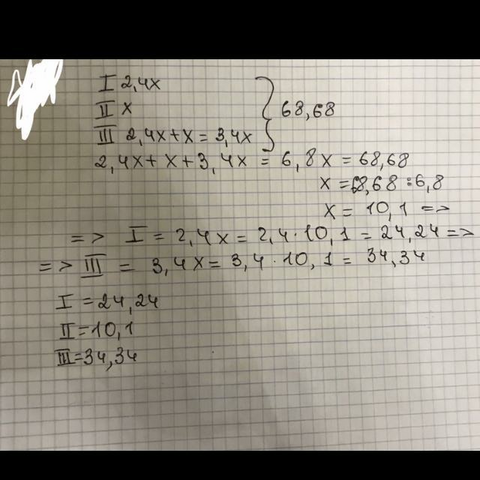 I 2,4x
II x
III 2,4x+x=3,4x } 68,68
2,4x+x+3,4x = 6,8x = 68,68
x = 68,68 : 6,8
x = 10,1 =>
=> I = 2,4x = 2,4·10,1 = 24,24 =>
=> III = 3,4x = 3,4·10,1 = 34,34
I = 24,24
II = 10,1
III = 34,34